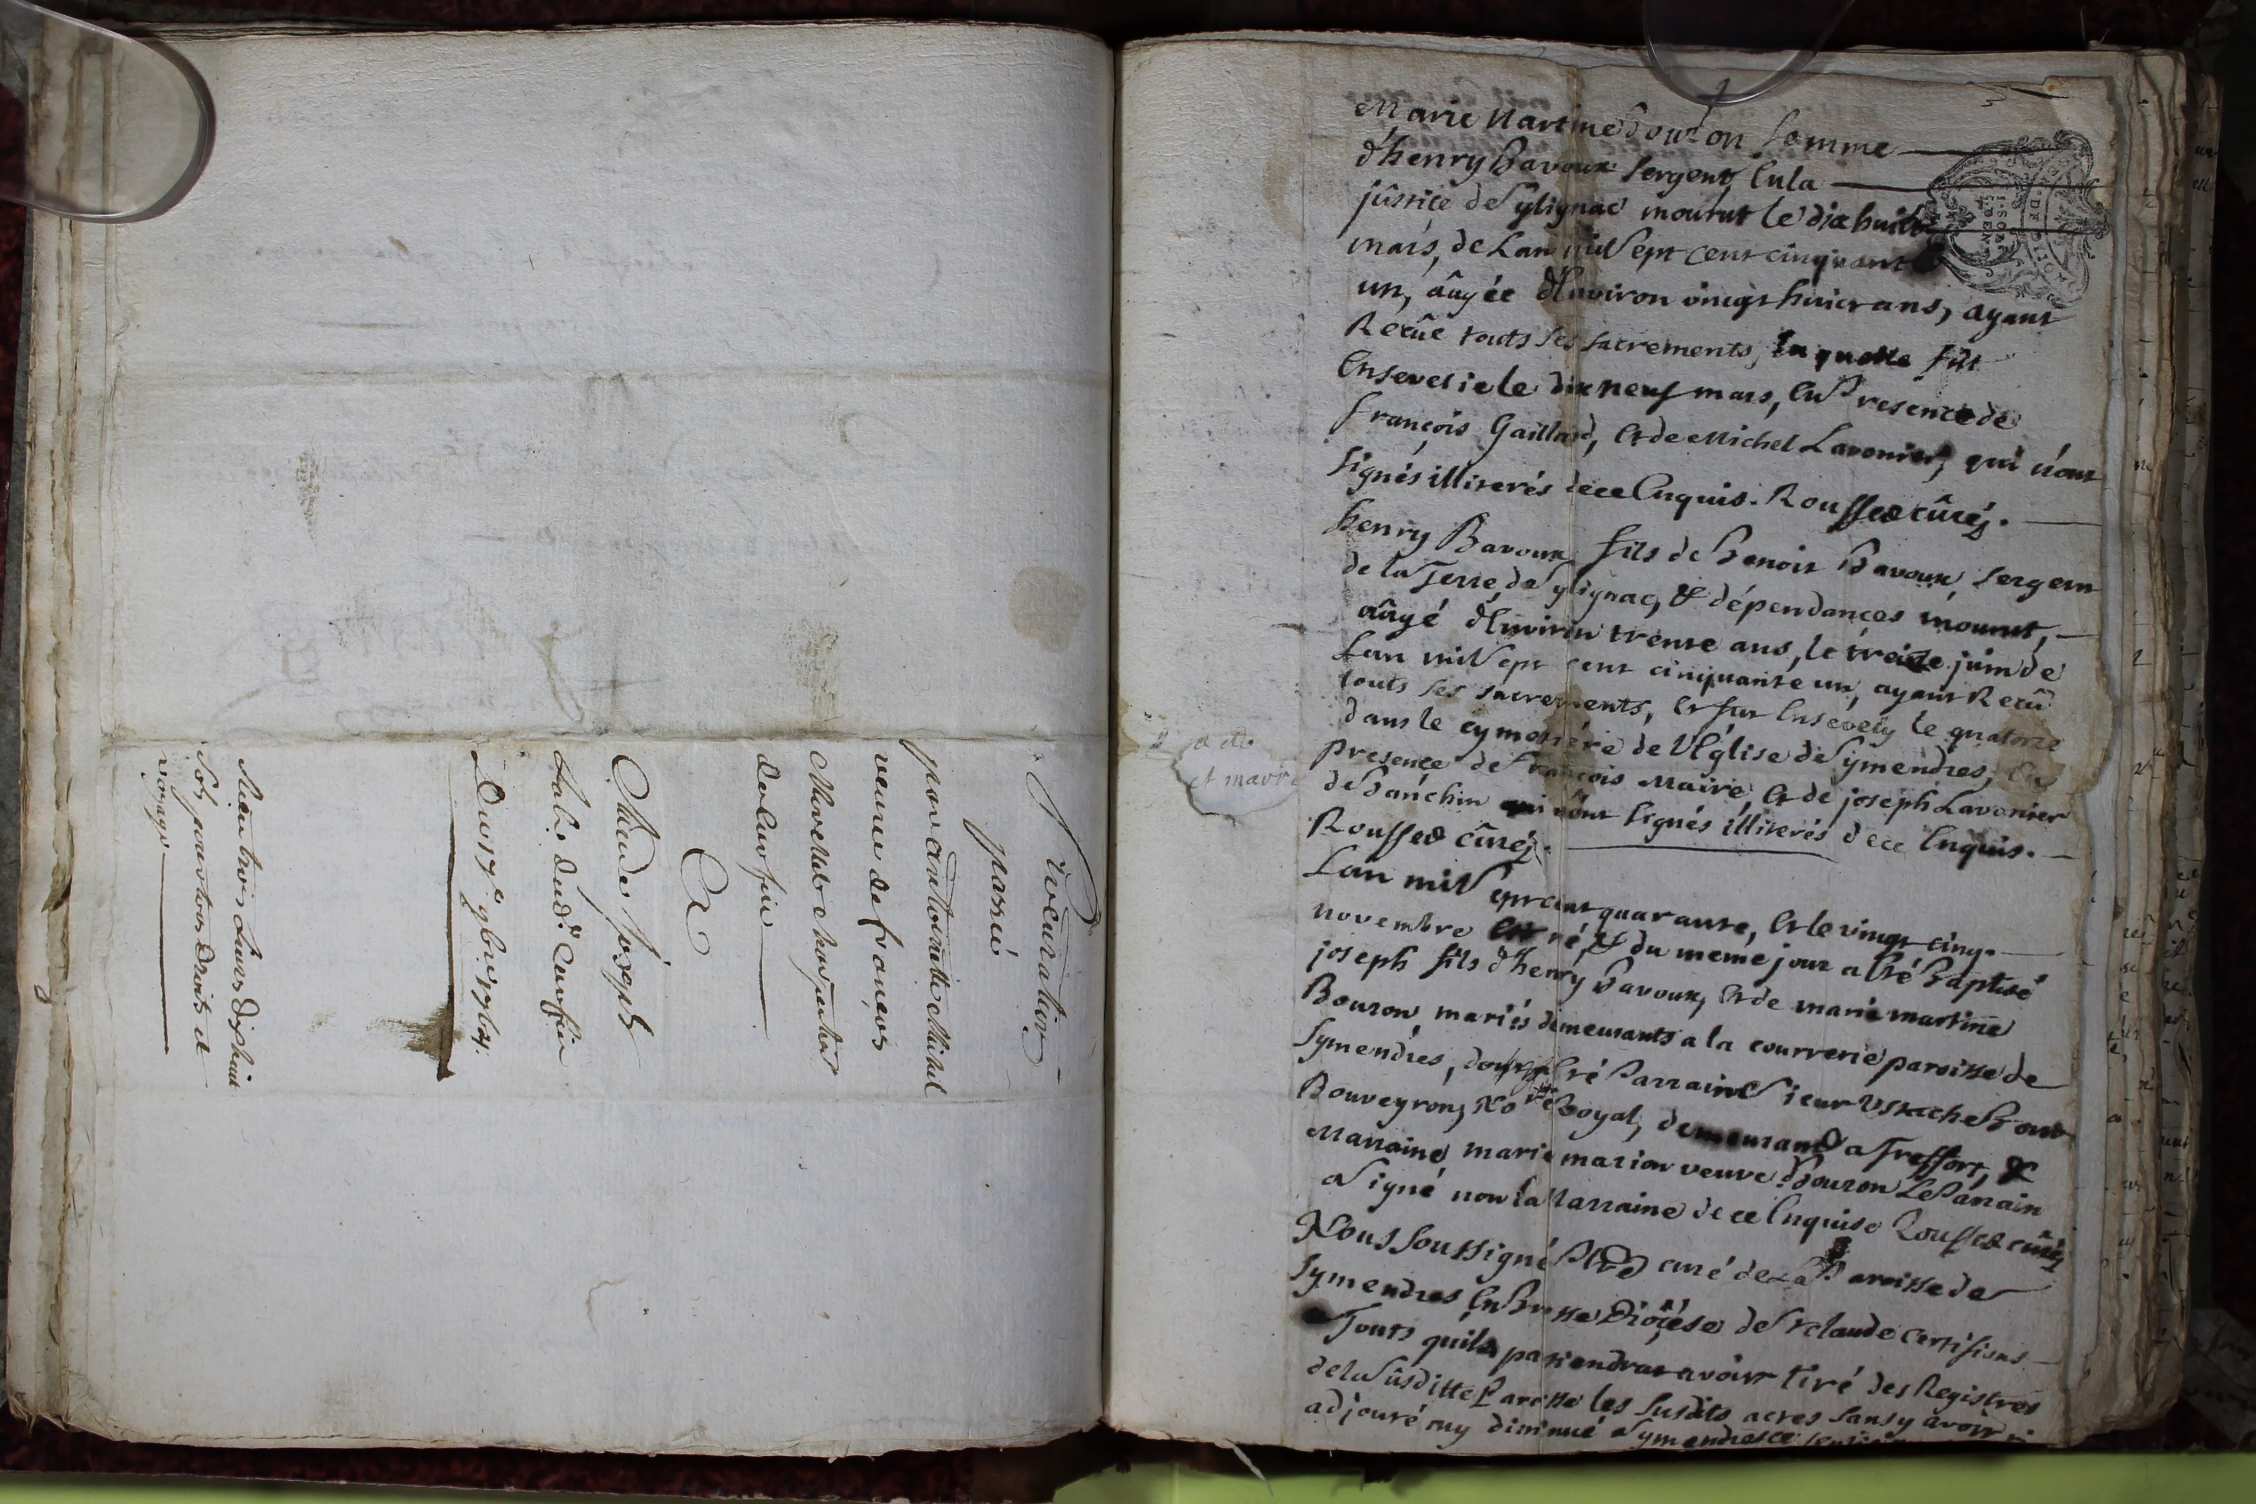 Procuration
passé
par antoinette Michel
veuve de françois
Morellet charpentier
de Cursin
A
Claude joseph
hab. dud. Cursin
Du 17e 9bre 1764.
Sieu trois Livres dix huit
Sols pour tous droits et
voyage
a etté
et mavr
Marie Martine Bouron femme
d'henry Bavoux sergent En la
jûstice de Sylignac mourut le dix huit
mars, de Lan mil Sept Cent cinquant
un, âagée d'Environ vingt huict ans, ayant
Recûe touts ses sacrements, laquelle fût
Ensevelie le dix neuf mars, En Presence de
françois Gaillard, Et de Michel Lavenier, qui n'ont
signés illiterés de ce Enquis. Rousset cûré.
henry Bavoux fils de Benoit Bavoux, sergent
de la Terre de Sylignac, & dépendances mourut,
âagé d'Environ trente ans, le treize juin de
Lan mil Sept cent cinquante un, ayant Recû
touts ses sacrements, Et fut Ensevely le quatorze
dans le cymetiére de l'Eglise de Symendres, En
presence de François Maire, Et de joseph Lavenier
de Banchin qui n'ont signés illiterés de ce Enquis.
Rousset cûré.
Lan mil Sept cent quarante, Et le vingt cinq
novembre Est né, & du meme jour a Eté Baptisé
joseph fils d'henry Bavoux, Et de marie martine
Bouron, mariés demeurants a la courrerie paroisse de
Symendres, dont a Eté Parrain Sieur Ustache Bon
Bouveyron, Nore Royal, demeurand a Treffort, &
Marraine marie marion veuve Bouron Le Parrain
a Signé non la Marraine de ce Enquise Rousset cûré
Nous Soussigné Ptre curé de La Paroisse de
Symendres En Bresse Diocése de St claude certifions
a Touts quil apartiendrat avoir tiré des Registres
de la Susditte Paroisse les susdits actes sans y avoir
adjouté ny diminué a Symendres ce